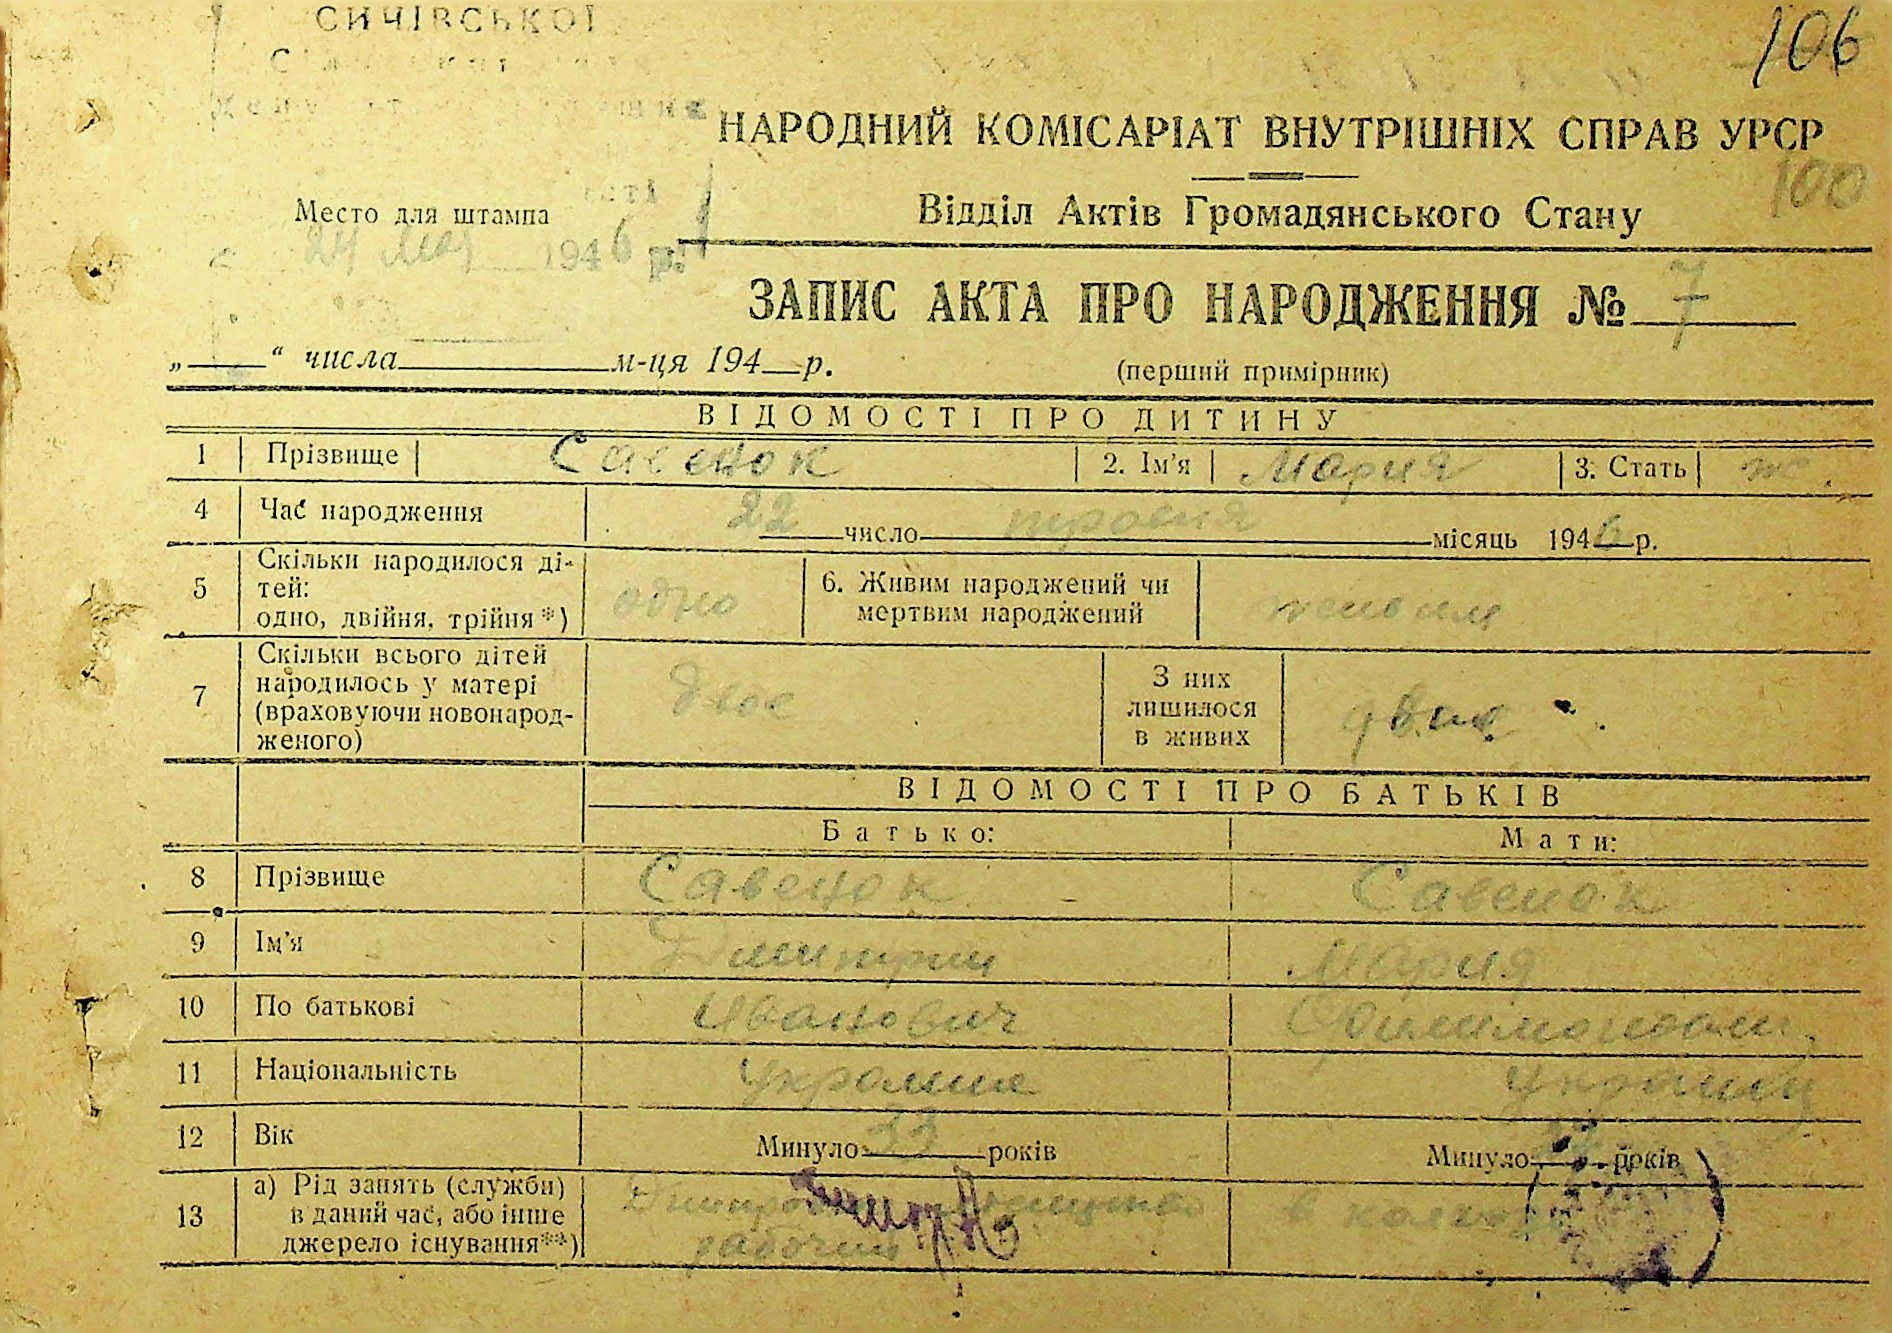 СИЧІВСЬКОЇ
106
НАРОДНИЙ КОМІСАРІАТ ВНУТРІШНІХ СПРАВ УРСР
100
Место для штампа
Відділ Актів Громадянського Стану
24 мая 1946 р.
ЗАПИС АКТА ПРО НАРОДЖЕННЯ № 7
„ “ числа м-ця 194 р.
(перший примірник)
ВІДОМОСТІ ПРО ДИТИНУ
1 Прізвище Савенок 2. Ім'я Мария 3. Стать ж.
4 Час народження 22 число травня місяць 1946 р.
5 Скільки народилося ді-
тей:
одно, двійня, трійня*) одно 6. Живим народжений чи
мертвим народжений живим
7 Скільки всього дітей
народилось у матері
(враховуючи новонарод-
женого) двое З них
лишилося
в живих двое
ВІДОМОСТІ ПРО БАТЬКІВ
Батько: Мати:
8 Прізвище Савенок Савенок
9 Ім'я Дмитрии Мария
10 По батькові Иванович
11 Національність
12 Вік Минуло 33 років Минуло років
13 а) Рід занять (служби)
в даний час, або інше
джерело існування**)
рабочий в колхозе